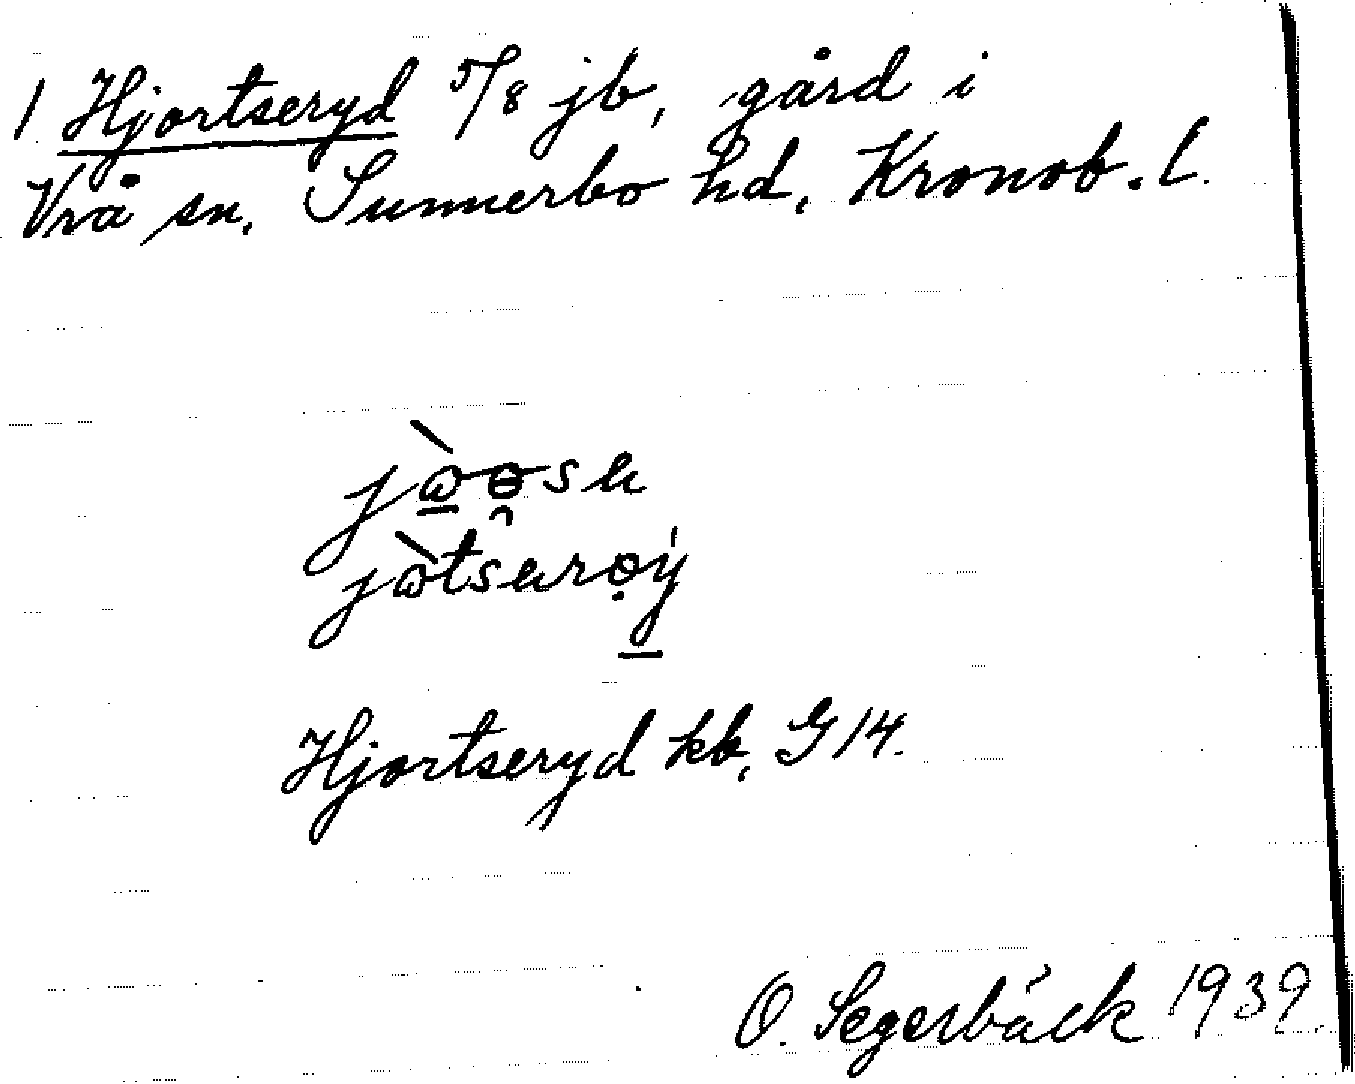 1 Hjortseryd 5/8 jb, gård i
Vrå sn, Sunnerbo hd, Kronob. l.
Hjortseryd kb, G 14.
O. Segerbäck 1939.